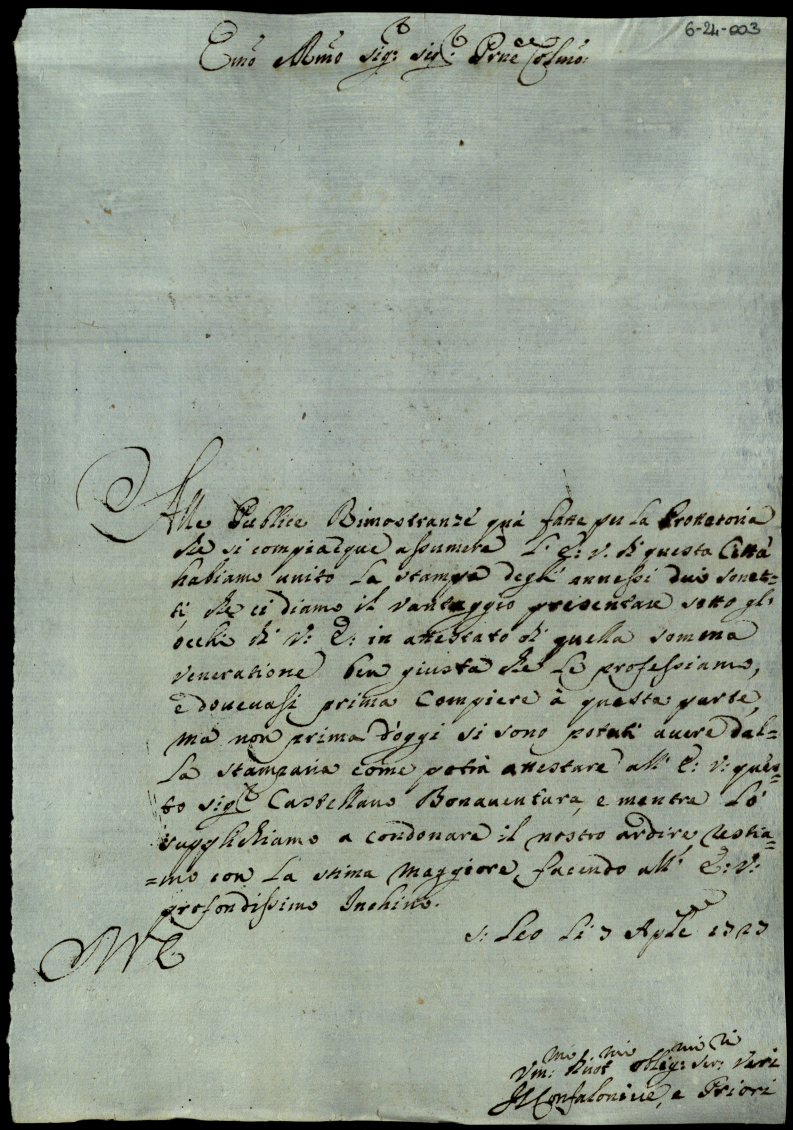 6-24-003
Em̃o Rm̃o sig:r sig:r Prñe Colm̃o:
Alle Publice Rimostranze quà fatte per la Prottetoria
che si compiacque assumere l' E: V: di questa Città
habiamo unito la stampa degl' annessi due sonet=
ti che ci diamo il vantaggio presentare sotto gl'
occhi di V: E: in attestato di quella somma
veneratione ben giusta che le professiamo,
e dovevasi prima Compiere à questa parte,
ma non prima d'oggi si sono potuti avere dal=
la stamparia come potrà attestare all' E: V: ques=
to sig:r Castellano Bonaventura, e mentre Lo
supplichiamo a condonare il nostro ardire restia=
=mo con la stima maggiore, facendo all' E: V:
profondissimo Inchino.
S: Leo li 3 Aplẽ 1723
Vm:mi Diuot:mi oblig:mi ser:ri Veri
Il Confaloniere, e Priori